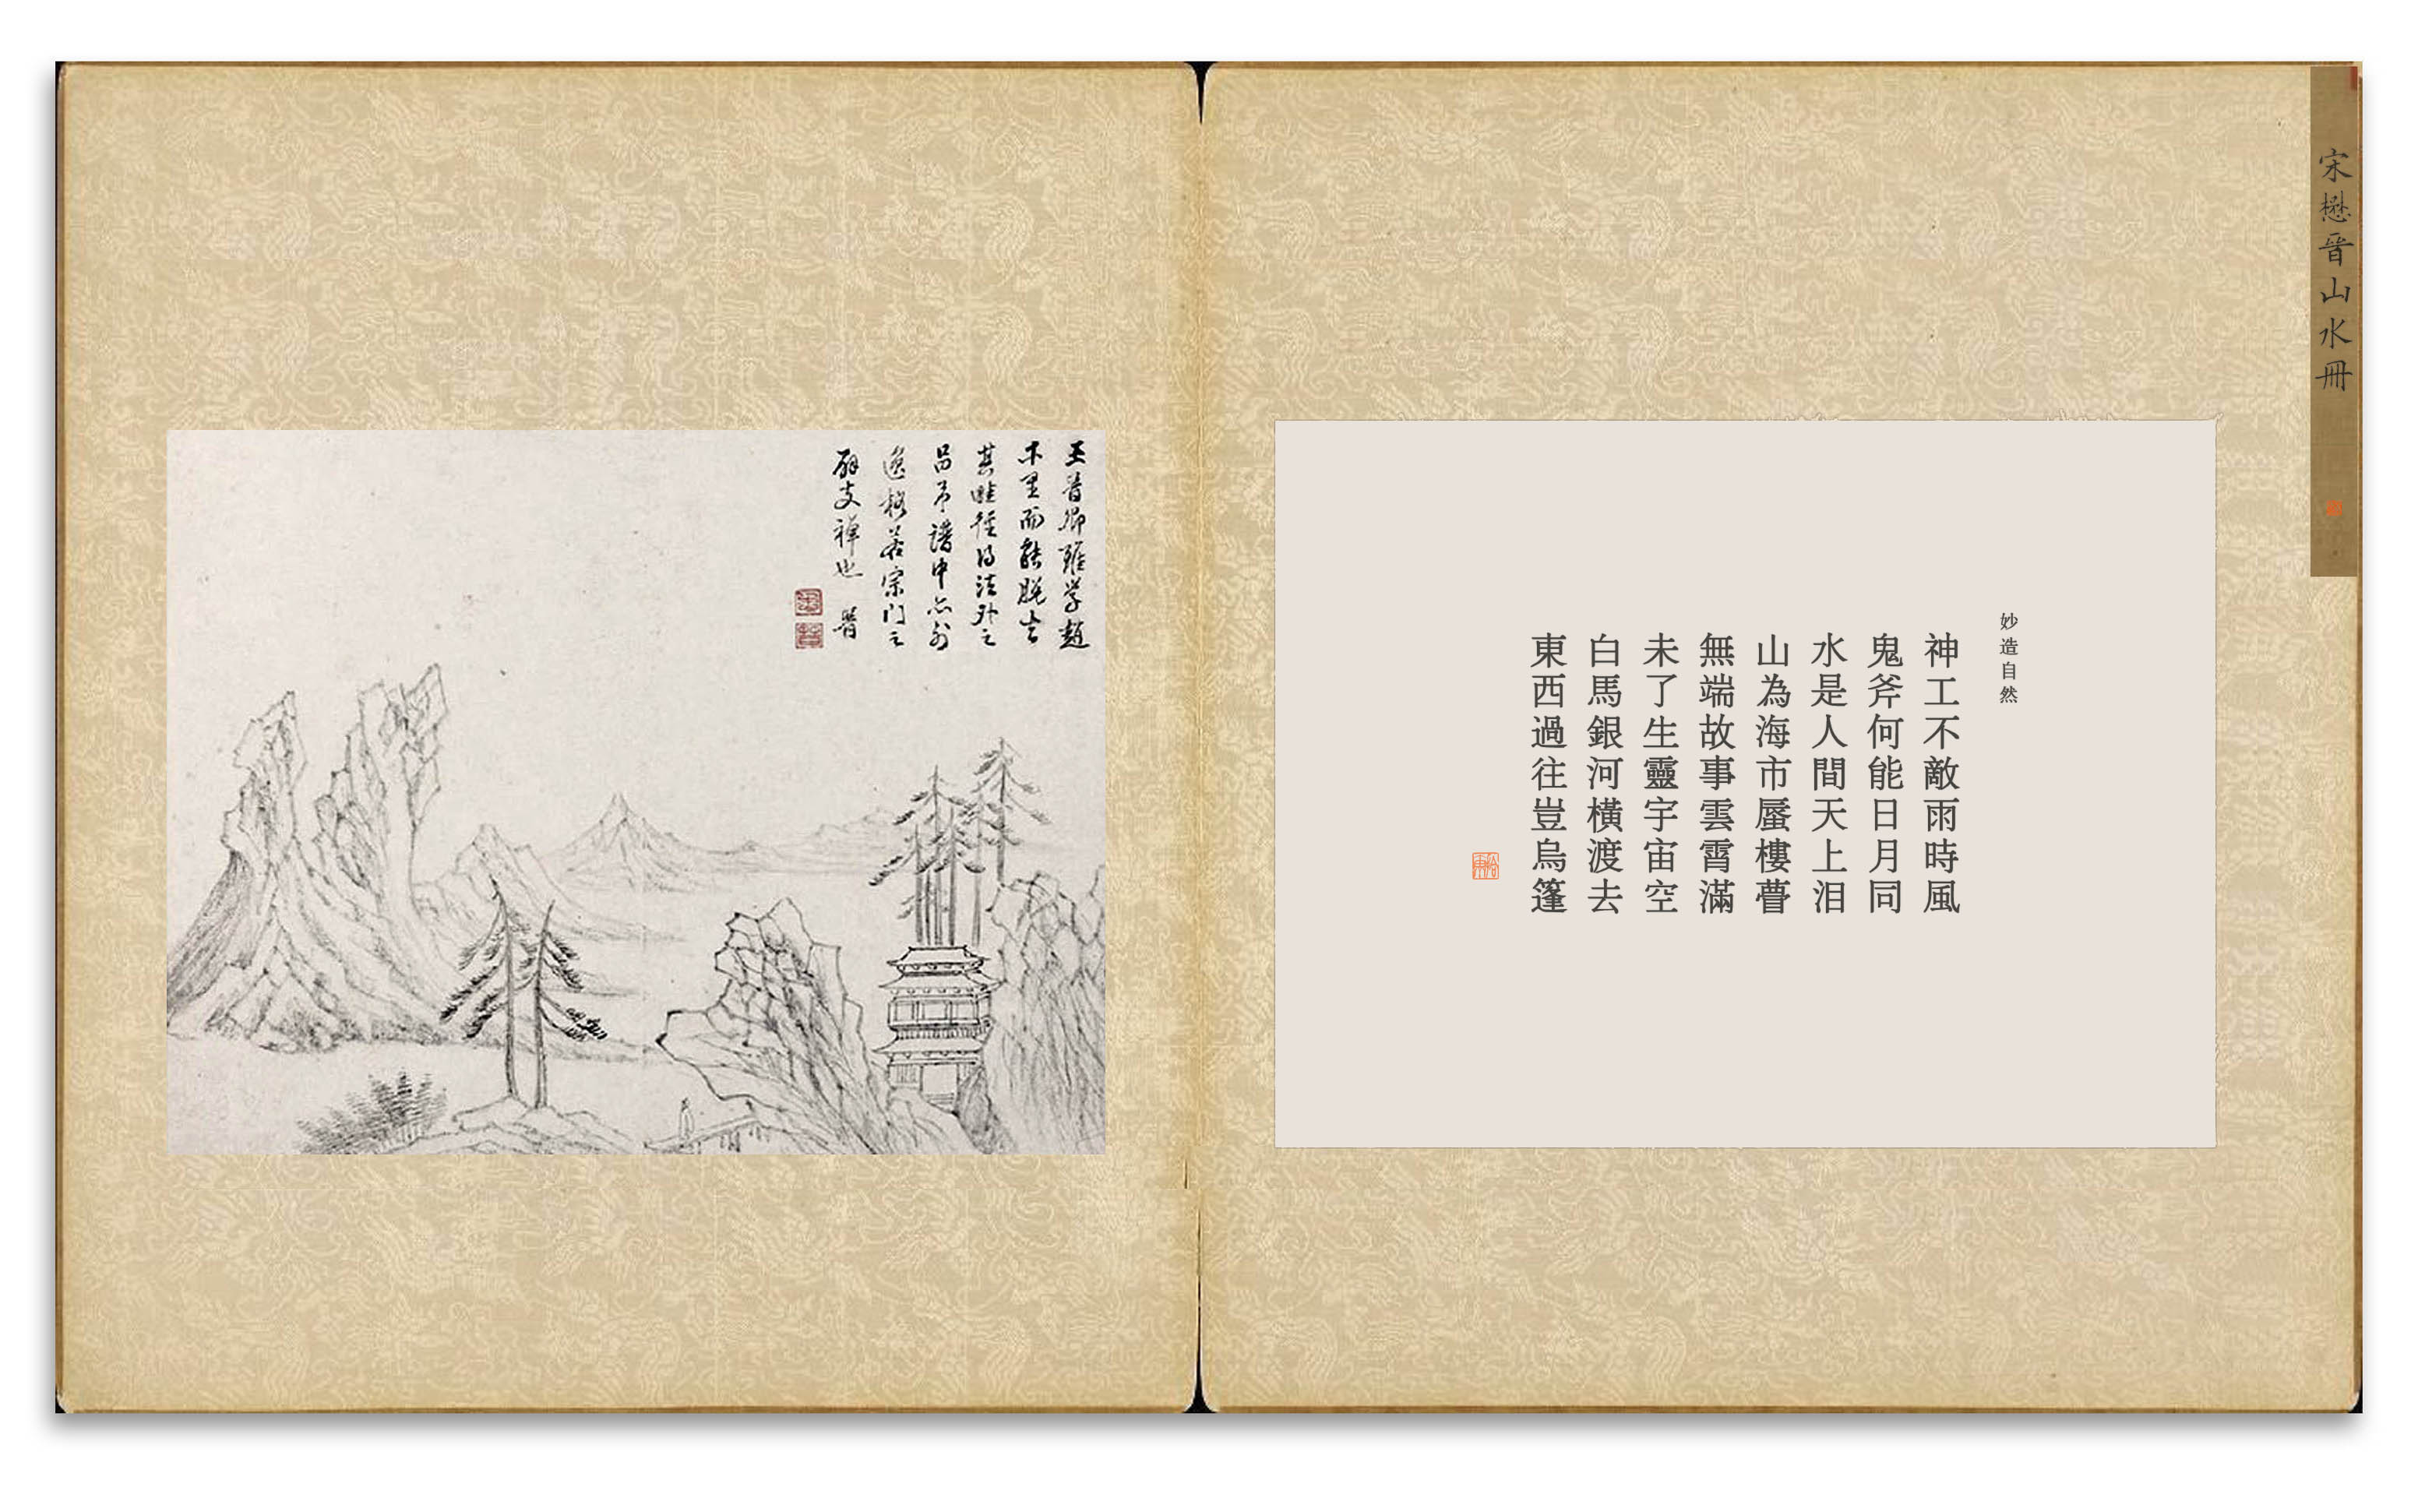 宋懋晉山水冊
妙造自然
神工不敵雨時風
鬼斧何能日月同
水是人間天上泪
山為海市蜃樓瞢
無端故事雲霄滿
未了生靈宇宙空
白馬銀河橫渡去
東西過往豈烏篷
王晉卿雖學趙
千里而能脫去
其畦徑得法外之
呂吊譜中亦列
逸格若宗門之
散支禪也 晉